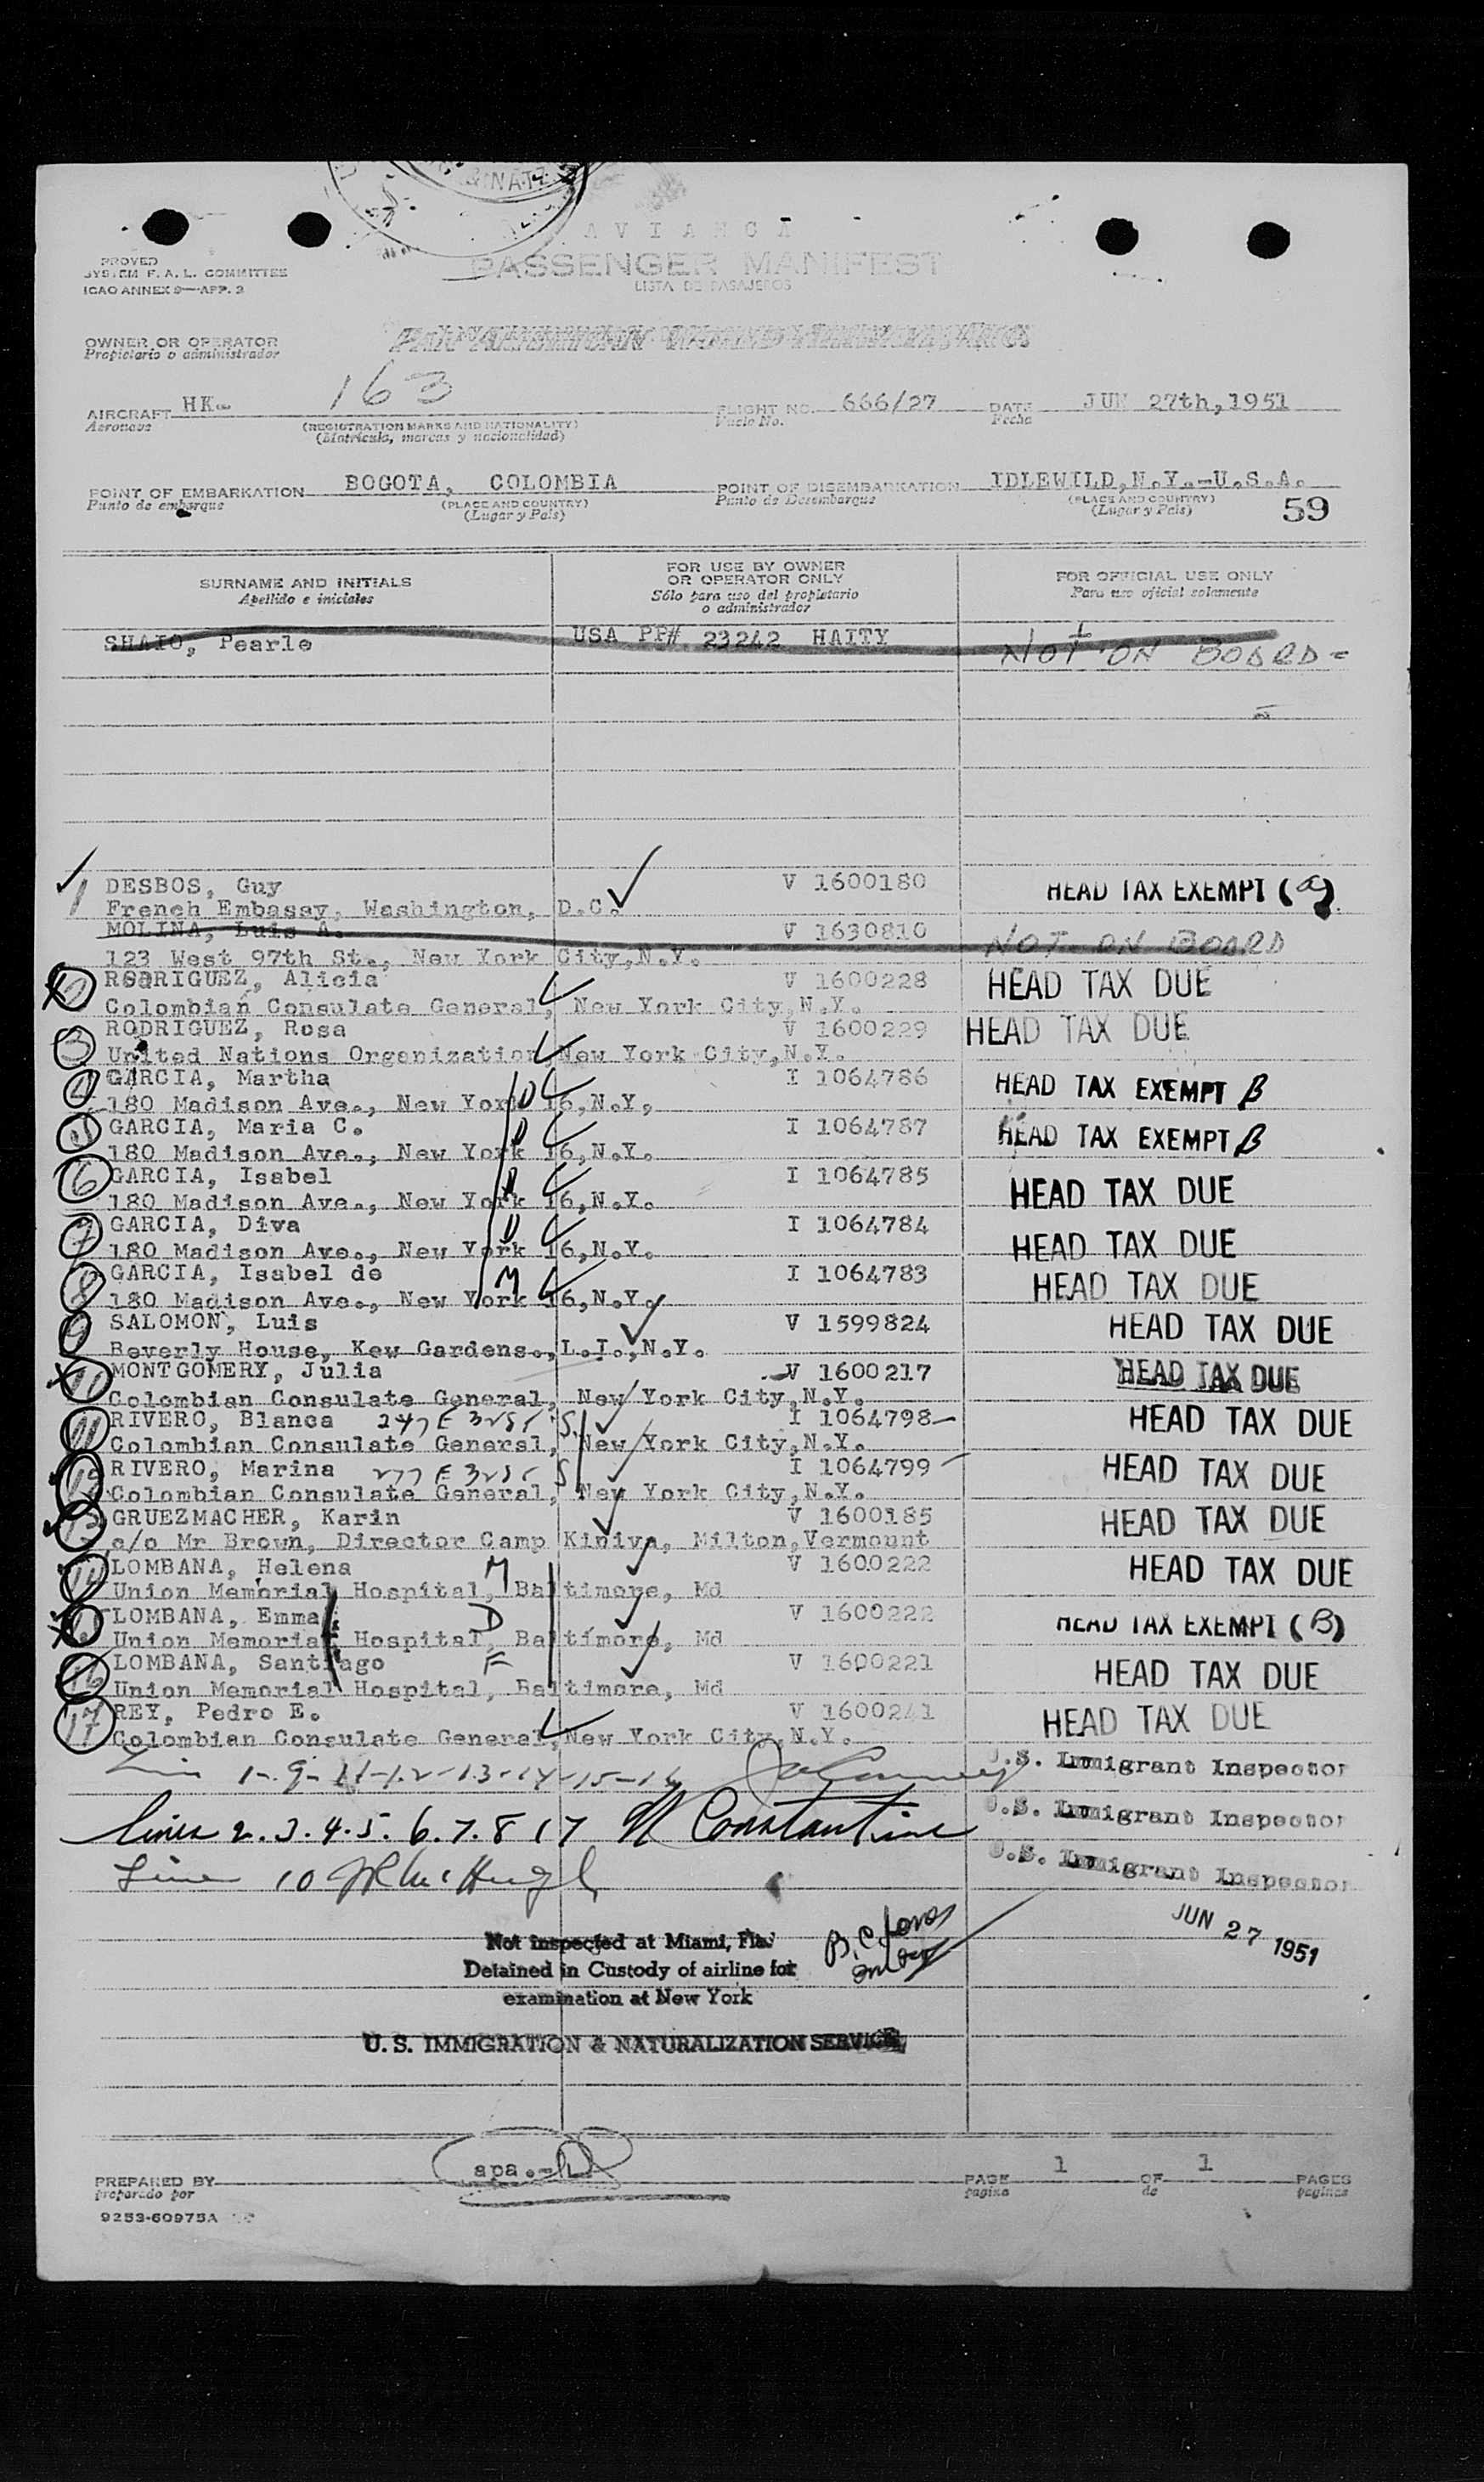 AVIANCA
PASSENGER MANIFEST
LISTA DE PASAJEROS
PROVED
SYSTEM F. A. L. COMMITTEE
ICAO ANNEX 9—APP. 3
OWNER OR OPERATOR
Propietario o administrador
AIRCRAFT HK- 163 FLIGHT NO. 666/27 DATE JUN 27th,1951
Aeronave (REGISTRATION MARKS AND NATIONALITY) Vuelo No. Fecha
(Matrícula, marcas y nacionalidad)
POINT OF EMBARKATION BOGOTA, COLOMBIA POINT OF DISEMBARKATION IDLEWILD,N.Y.-U.S.A.
Punto de embarque (PLACE AND COUNTRY) Punto de Desembarque (PLACE AND COUNTRY)
(Lugar y País) (Lugar y País) 59
SURNAME AND INITIALS FOR USE BY OWNER OR OPERATOR ONLY FOR OFFICIAL USE ONLY
Apellido e iniciales Sólo para uso del propietario o administrador Para uso oficial solamente
SHAIO, Pearle USA PP# 23242 HAITY NOT ON BOARD
1 DESBOS, Guy V 1600180 HEAD TAX EXEMPT (a)
French Embassy, Washington, D.C.
MOLINA, Luis A. V 1630810 NOT ON BOARD
123 West 97th St., New York City,N.Y.
RODRIGUEZ, Alicia V 1600228 HEAD TAX DUE
Colombian Consulate General, New York City,N.Y.
3 RODRIGUEZ, Rosa V 1600229 HEAD TAX DUE
United Nations Organization,New York City,N.Y.
4 GARCIA, Martha I 1064786 HEAD TAX EXEMPT B
180 Madison Ave., New York 16,N.Y. D
GARCIA, Maria C. I 1064787 HEAD TAX EXEMPT B
180 Madison Ave., New York 16,N.Y. D
6 GARCIA, Isabel I 1064785 HEAD TAX DUE
180 Madison Ave., New York 16,N.Y. D
7 GARCIA, Diva I 1064784 HEAD TAX DUE
180 Madison Ave., New York 16,N.Y. D
8 GARCIA, Isabel de I 1064783 HEAD TAX DUE
180 Madison Ave., New York 16,N.Y. M
9 SALOMON, Luis V 1599824 HEAD TAX DUE
Beverly House, Kew Gardens.,L.I.,N.Y.
MONTGOMERY, Julia V 1600217 HEAD TAX DUE
Colombian Consulate General, New York City,N.Y.
11 RIVERO, Blanca S I 1064798 HEAD TAX DUE
Colombian Consulate General, New York City,N.Y.
12 RIVERO, Marina S I 1064799 HEAD TAX DUE
Colombian Consulate General, New York City,N.Y.
13 GRUEZMACHER, Karin V 1600185 HEAD TAX DUE
c/o Mr Brown, Director Camp Kiniya, Milton,Vermount
14 LOMBANA, Helena M V 1600222 HEAD TAX DUE
Union Memorial Hospital, Baltimore, Md
LOMBANA, Emma D V 1600222 HEAD TAX EXEMPT (B)
Union Memorial Hospital, Baltimore, Md
16 LOMBANA, Santiago F V 1600221 HEAD TAX DUE
Union Memorial Hospital, Baltimore, Md
17 REY, Pedro E. V 1600241 HEAD TAX DUE
Colombian Consulate General,New York City,N.Y.
1-9-11-12-13-14-15-16 U.S. Immigrant Inspector
Lines 2.3.4.5.6.7.8 17 Constantine U.S. Immigrant Inspector
Line 10 U.S. Immigrant Inspector
JUN 27 1951
Not inspected at Miami, Fla.
Detained in Custody of airline for
examination at New York
U. S. IMMIGRATION & NATURALIZATION SERVICE
apa.
PREPARED BY PAGE 1 OF 1 PAGES
preparado por pagina de paginas
9253-60975A